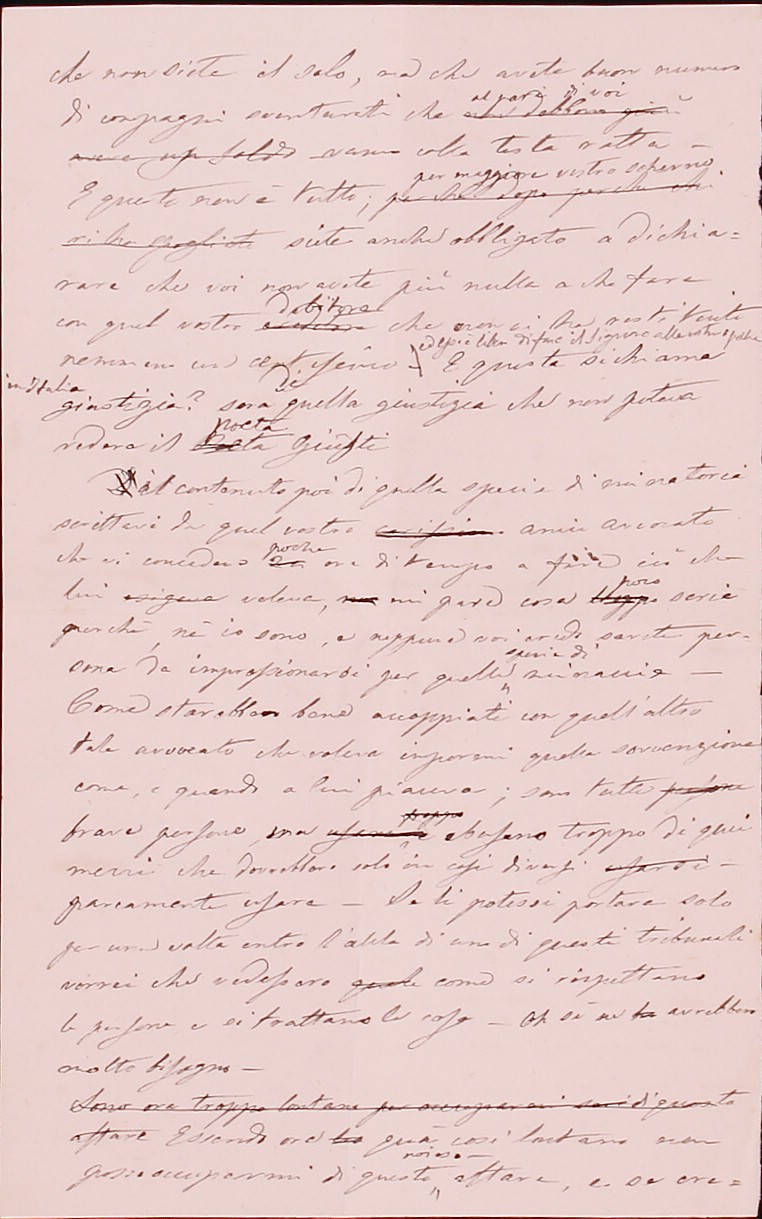 che non siete il solo, ma che avete buon numero
al pari di voi
di compagni sventurati che non debbono più
avere un soldo vanno colla testa rotta –
per maggiore vostro scherno
E questo non è tutto; perchè dopo
siete anche obbligato a dichia=
rare che voi non avete più nulla a che fare
debitore
con quel vostro creditore che non vi ha restituito
nemmeno un cent.
E questa si chiama
in Italia
giustizia? sarà quella giustizia che non poteva
poeta
vedere il Poeta Giusti
Al contenuto poi di quella specie di minatoria
scrittavi da quel vostro carissimo amico avvocato
poche
che vi concedeva 24 ore di tempo a fare ciò che
poco
lui esigeva voleva, mi pare cosa troppo seria
perchè, nè io sono, e neppure voi credo sarete per=
specie di
sona da impressionarsi per quelle minaccie –
Come starebbero bene accoppiati con quell'altro
tale avvocato che voleva impormi quella sovvenzione
come, e quando a lui piaceva; sono tutte persone
troppo
brave persone, ma abusano troppo di quei
mezzi che dovrebbero solo in casi diversi usarsi –
parcamente usare – Se li potessi portare solo
per una volta entro l'aula di uno di questi tribunali
vorrei che vedessero quale come si rispettano
le persone e si trattano le cose – Oh sì ne avrebbero
molto bisogno –
Sono ora troppo lontano per occuparmi di questo
affare Essendo ora quà così lontano non
noioso –
posso occuparmi di questo affare, e se cre=